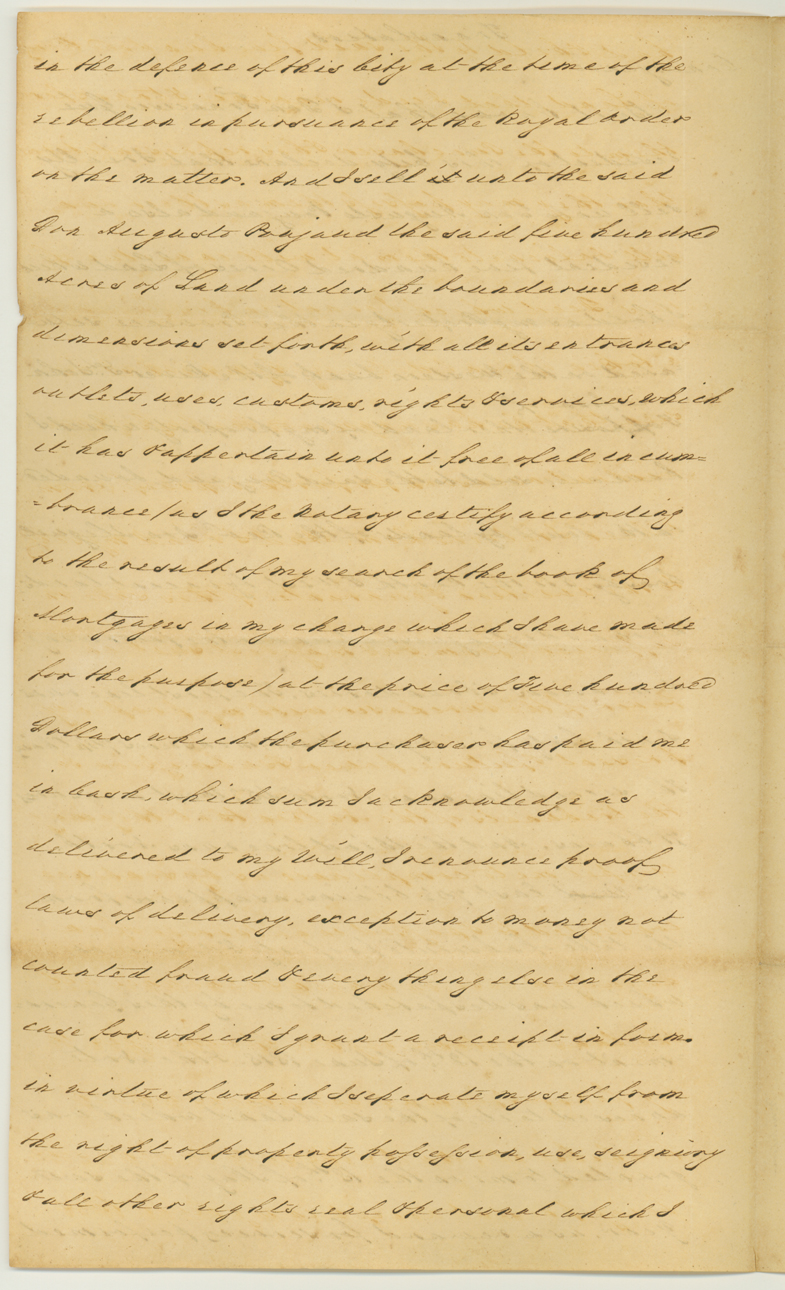 in the defence of this City at the time of the
rebellion in pursuance of the Royal order
on the matter. And I sell it unto the said
Don Augusto Poujaud the said five hundred
Acres of Land under the boundaries and
dimensions set forth, with all its entrances
outlets, uses, customs, rights & services, which
it has & appertain unto it free of all incum=
=brance / as I the Notary certify according
to the result of my search of the book of
Mortgages in my charge which I have made
for the purpose) at the price of Five hundred
Dollars which the purchaser has paid me
in Cash, which sum I acknowledge as
delivered to my Will, I renounce proof
laws of delivery, exception to money not
counted fraud & every thing else in the
case for which I grant a receipt in form.
in virtue of which I seperate myself from
the right of property possession, use, seigniory
& all other rights real & personal which I